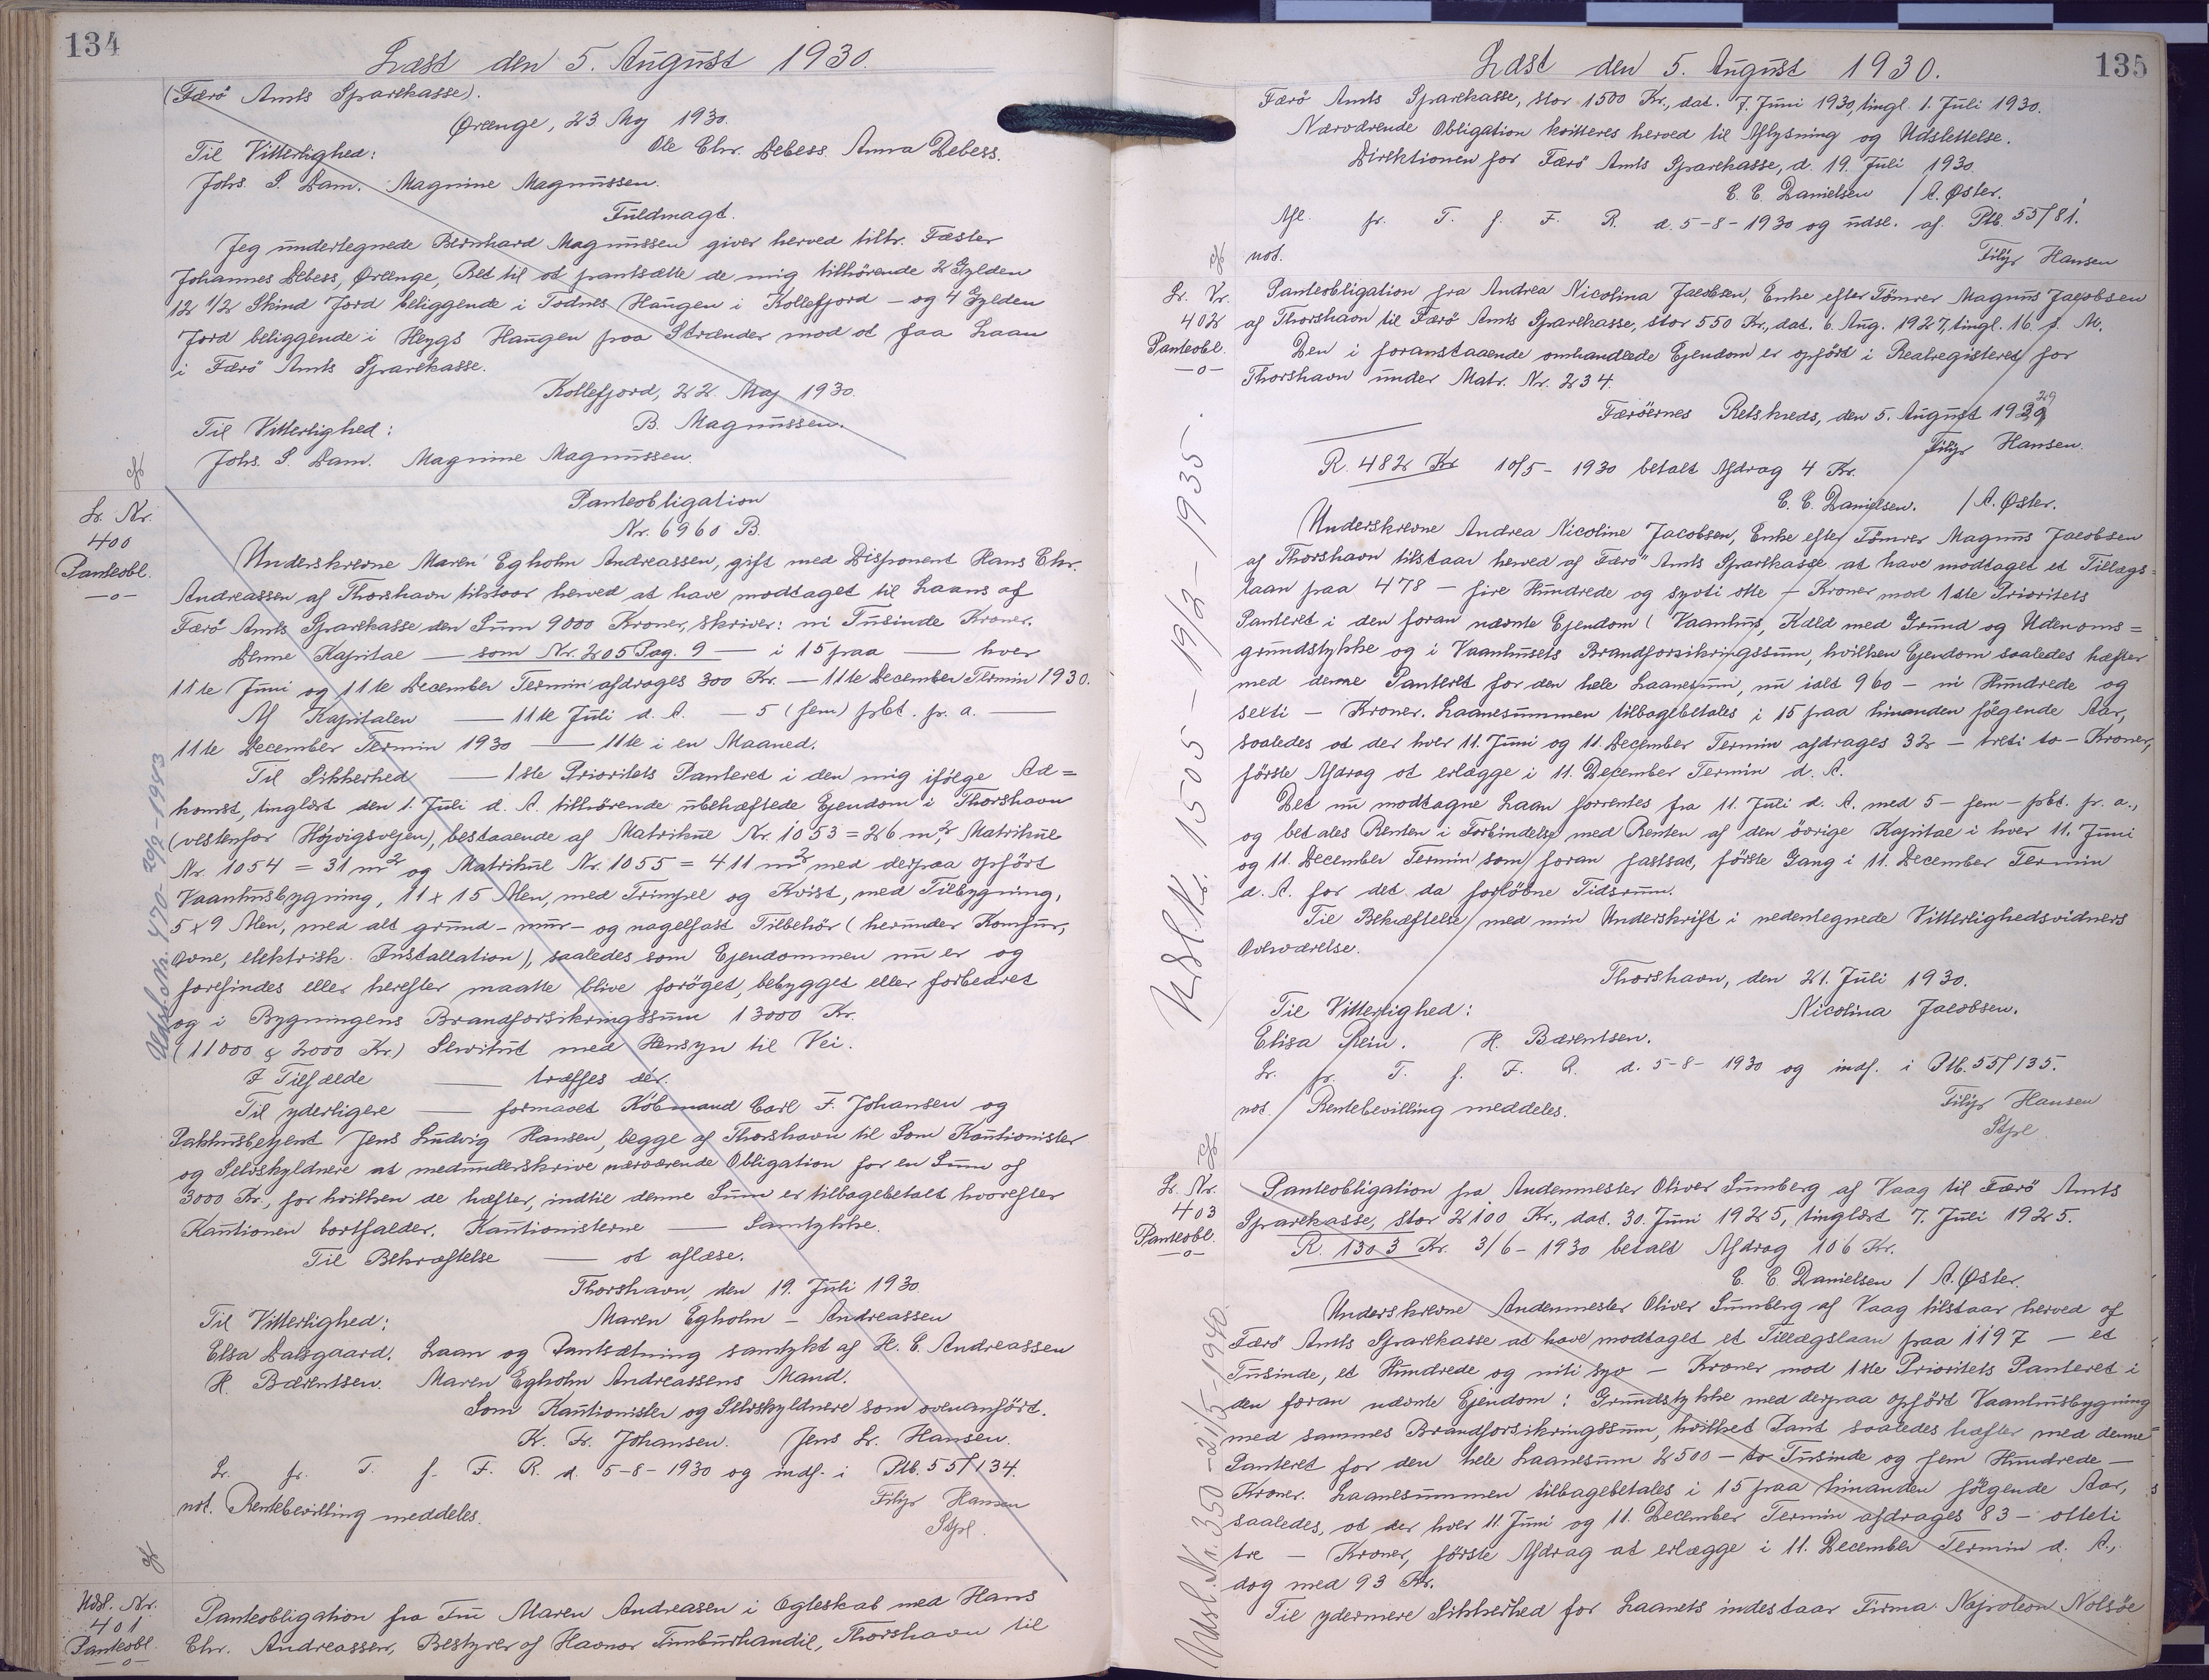 134
Læst den 5. August 1930.
(Færö Amts Sparekasse).
Ørænge, 23. Maj 1930.
Til Vitterlighed: Ole Chr. Debess. Anna Debess.
Johs. S. Dam. Magnine Magnussen.
Fuldmagt.
Jeg undertegnede Bernhard Magnussen giver herved tillr. Fæster
Johannes Debess, Ørænge, Ret til at pantsætte de mig tilhörende 2 Gylden
12 1/2 Skind Jord beliggende i Todnes Haugen i Kollefjord - og 4 Gylden
Jord beliggende i Heygs Haugen paa Strænder mod at faa Laan
i Færö Amts Sparekasse.
Kollefjord, 22. Maj 1930.
Til Vitterlighed: B. Magnussen.
Johs. S. Dam. Magnine Magnussen.
Lr. Nr.
400
Panteobl.
—o—
Panteobligation
Nr. 6960 B.
Underskrevne Maren Egholm Andreassen, gift med Disponent Hans Chr.
Andreassen af Thorshavn tilstaar herved at have modtaget til Laans af
Færö Amts Sparekasse den Sum 9000 Kroner, skriver: ni Tusinde Kroner.
Denne Kapital — som Nr. 205 Pag. 9 — i 15 paa — hver
11te Juni og 11te December Termin afdrages 300 Kr. — 11te December Termin 1930.
Af Kapitalen — 11te Juli d. A. — 5 (fem) pbt. pr. a. —
11te December Termin 1930 — 11te i en Maaned.
Til Sikkerhed — 1ste Prioritets Panteret i den mig ifölge Ad=
komst, tinglæst den 1. Juli d. A. tilhörende ubehæftede Ejendom i Thorshavn
(vestenfor Höjvigsvejen), bestaaende af Matrikul Nr. 1053 = 26 m², Matrikul
Nr. 1054 = 31 m² og Matrikul Nr. 1055 = 411 m² med derpaa opfört
Vaanhusbygning, 11 x 15 Alen, med Trimpel og Kvist, med Tilbygning,
5 x 9 Alen, med alt grund- mur- og nagelfast Tilbehör (herunder Komfur,
Ovne, elektrisk Installation), saaledes som Ejendommen nu er og
forefindes eller herefter maatte blive foröget, bebygget eller forbedret
og i Bygningens Brandforsikringssum 13000 Kr.
(11000 & 2000 Kr.) Servitut med Hensyn til Vei.
I Tilfælde — træffes der.
Til yderligere — formaaet Köbmand Carl F. Johansen og
Pakhusbetjent Jens Ludvig Hansen, begge af Thorshavn til Som Kautionister
og Selvskyldnere at medunderskrive nærværende Obligation for en Sum af
3000 Kr., for hvilken de hæfter, indtil denne Sum er tilbagebetalt hvorefter
Kautionen bortfalder. Kautionisterne — Samtykke.
Til Bekræftelse — at aflæse.
Thorshavn, den 19. Juli 1930.
Til Vitterlighed: Maren Egholm - Andreassen
Elsa Dalsgaard. Laan og Pantsætning samtykt af H. C. Andreassen
H. Bærentsen. Maren Egholm Andreassens Mand.
Som Kautionister og Selvskyldnere som ovenanfört.
K. Fr. Johansen. Jens L. Hansen.
Lr. fr. T. f. F. R. d. 5-8-1930 og indf. i Ptb. 55/134.
not. Rentebevilling meddeles. Filip Hansen
Stpl.
Udsl. Nr. 470 - 20/2-1943
Udsl. Nr.
401
Panteobl.
—o—
Panteobligation fra Fru Maren Andreasen i Ægteskab med Hans
Chr. Andreassen, Bestyrer af Havnar Timburhandil, Thorshavn til
135
Læst den 5. August 1930.
Færö Amts Sparekasse, stor 1500 Kr., dat. 7. Juni 1930, tingl. 1. Juli 1930.
Nærværende Obligation kvitteres herved til Aflysning og Udslettelse.
Direktionen for Færö Amts Sparekasse, d. 19. Juli 1930.
C. C. Danielsen / A. Øster.
Afl. fr. T. f. F. R. d. 5-8-1930 og udsl. af Ptb. 55/81.
not. Filip Hansen
Lr. Nr.
402
Panteobl.
—o—
Panteobligation fra Andrea Nicolina Jacobsen, Enke efter Tömrer Magnus Jacobsen
af Thorshavn til Færö Amts Sparekasse, stor 550 Kr., dat. 6. Aug. 1927, tingl. 16. s. M.
Den i foranstaaende omhandlede Ejendom er opfört i Realregisteret for
Thorshavn under Matr. Nr. 234.
Færöernes Retskreds, den 5. August 1929
Filip Hansen.
R. 482 Kr 10/5-1930 betalt Afdrag 4 Kr.
C. C. Danielsen. / A. Øster.
Underskrevne Andrea Nicoline Jacobsen, Enke efter Tömrer Magnus Jacobsen
af Thorshavn tilstaar herved af Færö Amts Sparekasse at have modtaget et Tillægs=
laan paa 478 - fire Hundrede og syvti otte - Kroner mod 1ste Prioritets
Panteret i den foran nævnte Ejendom (Vaanhus, Kæld med Grund og Udenoms=
grundstykke og i Vaanhusets Brandforsikringssum, hvilken Ejendom saaledes hæfter
med denne Panteret for den hele Laanesum, nu ialt 960 - ni Hundrede og
sexti - Kroner. Laanesummen tilbagebetales i 15 paa hinanden fölgende Aar,
saaledes at der hver 11. Juni og 11. December Termin afdrages 32 - treti to - Kroner,
förste Afdrag at erlægge i 11. December Termin d. A.
Det nu modtagne Laan forrentes fra 11. Juli d. A. med 5 - fem - pbt. pr. a.,
og betales Renten i Forbindelse med Renten af den övrige Kapital i hver 11. Juni
og 11. December Termin som foran fastsat, förste Gang i 11. December Termin
d. A. for det da forlöbne Tidsrum.
Til Bekræftelse med min Underskrift i nedentegnede Vitterlighedsvidners
Overværelse.
Thorshavn, den 21. Juli 1930.
Til Vitterlighed: Nicolina Jacobsen.
Elisa Rein. H. Bærentsen.
Lr. fr. T. f. F. R. d. 5-8-1930 og indf. i Ptb. 55/135.
not. Rentebevilling meddeles. Filip Hansen
Stpl.
Udsl. Nr. 1505 - 19/2 - 1935.
Lr. Nr.
403
Panteobl.
—o—
Panteobligation fra Andenmester Oliver Sumberg af Vaag til Færö Amts
Sparekasse, stor 2100 Kr., dat. 30. Juni 1925, tinglæst 7. Juli 1925.
R. 1303 Kr. 3/6-1930 betalt Afdrag 106 Kr.
C. C. Danielsen / A. Øster.
Underskrevne Andenmester Oliver Sumberg af Vaag tilstaar herved af
Færö Amts Sparekasse at have modtaget et Tillægslaan paa 1197 - et
Tusinde, et Hundrede og niti syv - Kroner mod 1ste Prioritets Panteret i
den foran nævnte Ejendom: Grundstykke med derpaa opfört Vaanhusbygning
med sammes Brandforsikringssum, hvilket Pant saaledes hæfter med denne
Panteret for den hele Laanesum 2500 - to Tusinde og fem Hundrede -
Kroner. Laanesummen tilbagebetales i 15 paa hinanden fölgende Aar,
saaledes, at der hver 11. Juni og 11. December Termin afdrages 83 - otteti
tre - Kroner, förste Afdrag at erlægge i 11. December Termin d. A.,
dog med 93 Kr.
Til ydermere Sikkerhed for Laanets indestaar Firma Napoleon Nolsöe
Udsl. Nr. 350 - 21/5-1940.